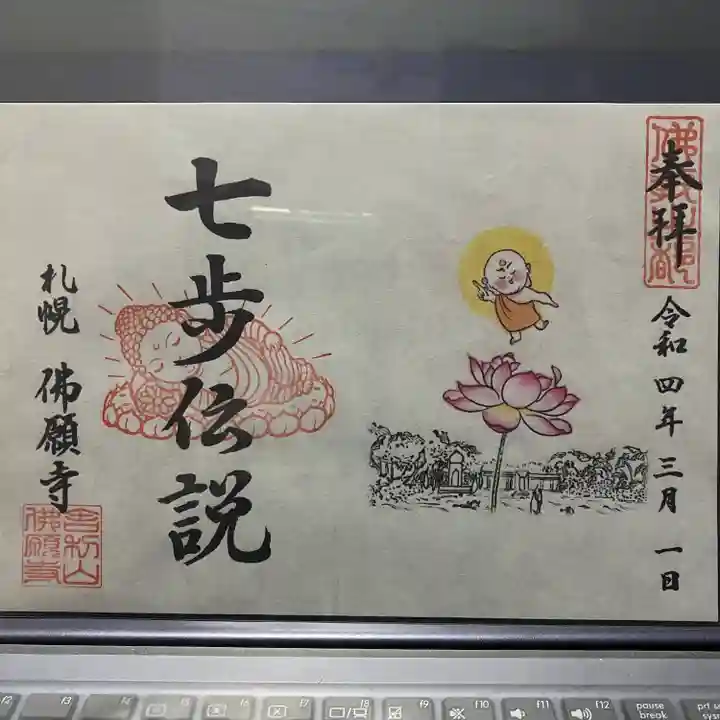 奉拝
令和四年三月一日
七歩伝説
札幌 佛願寺
舎利山
佛願寺
f2
f3
f4
f5
f6
f7
f8
f9
f10
f11
f12
pause
break
prt sc